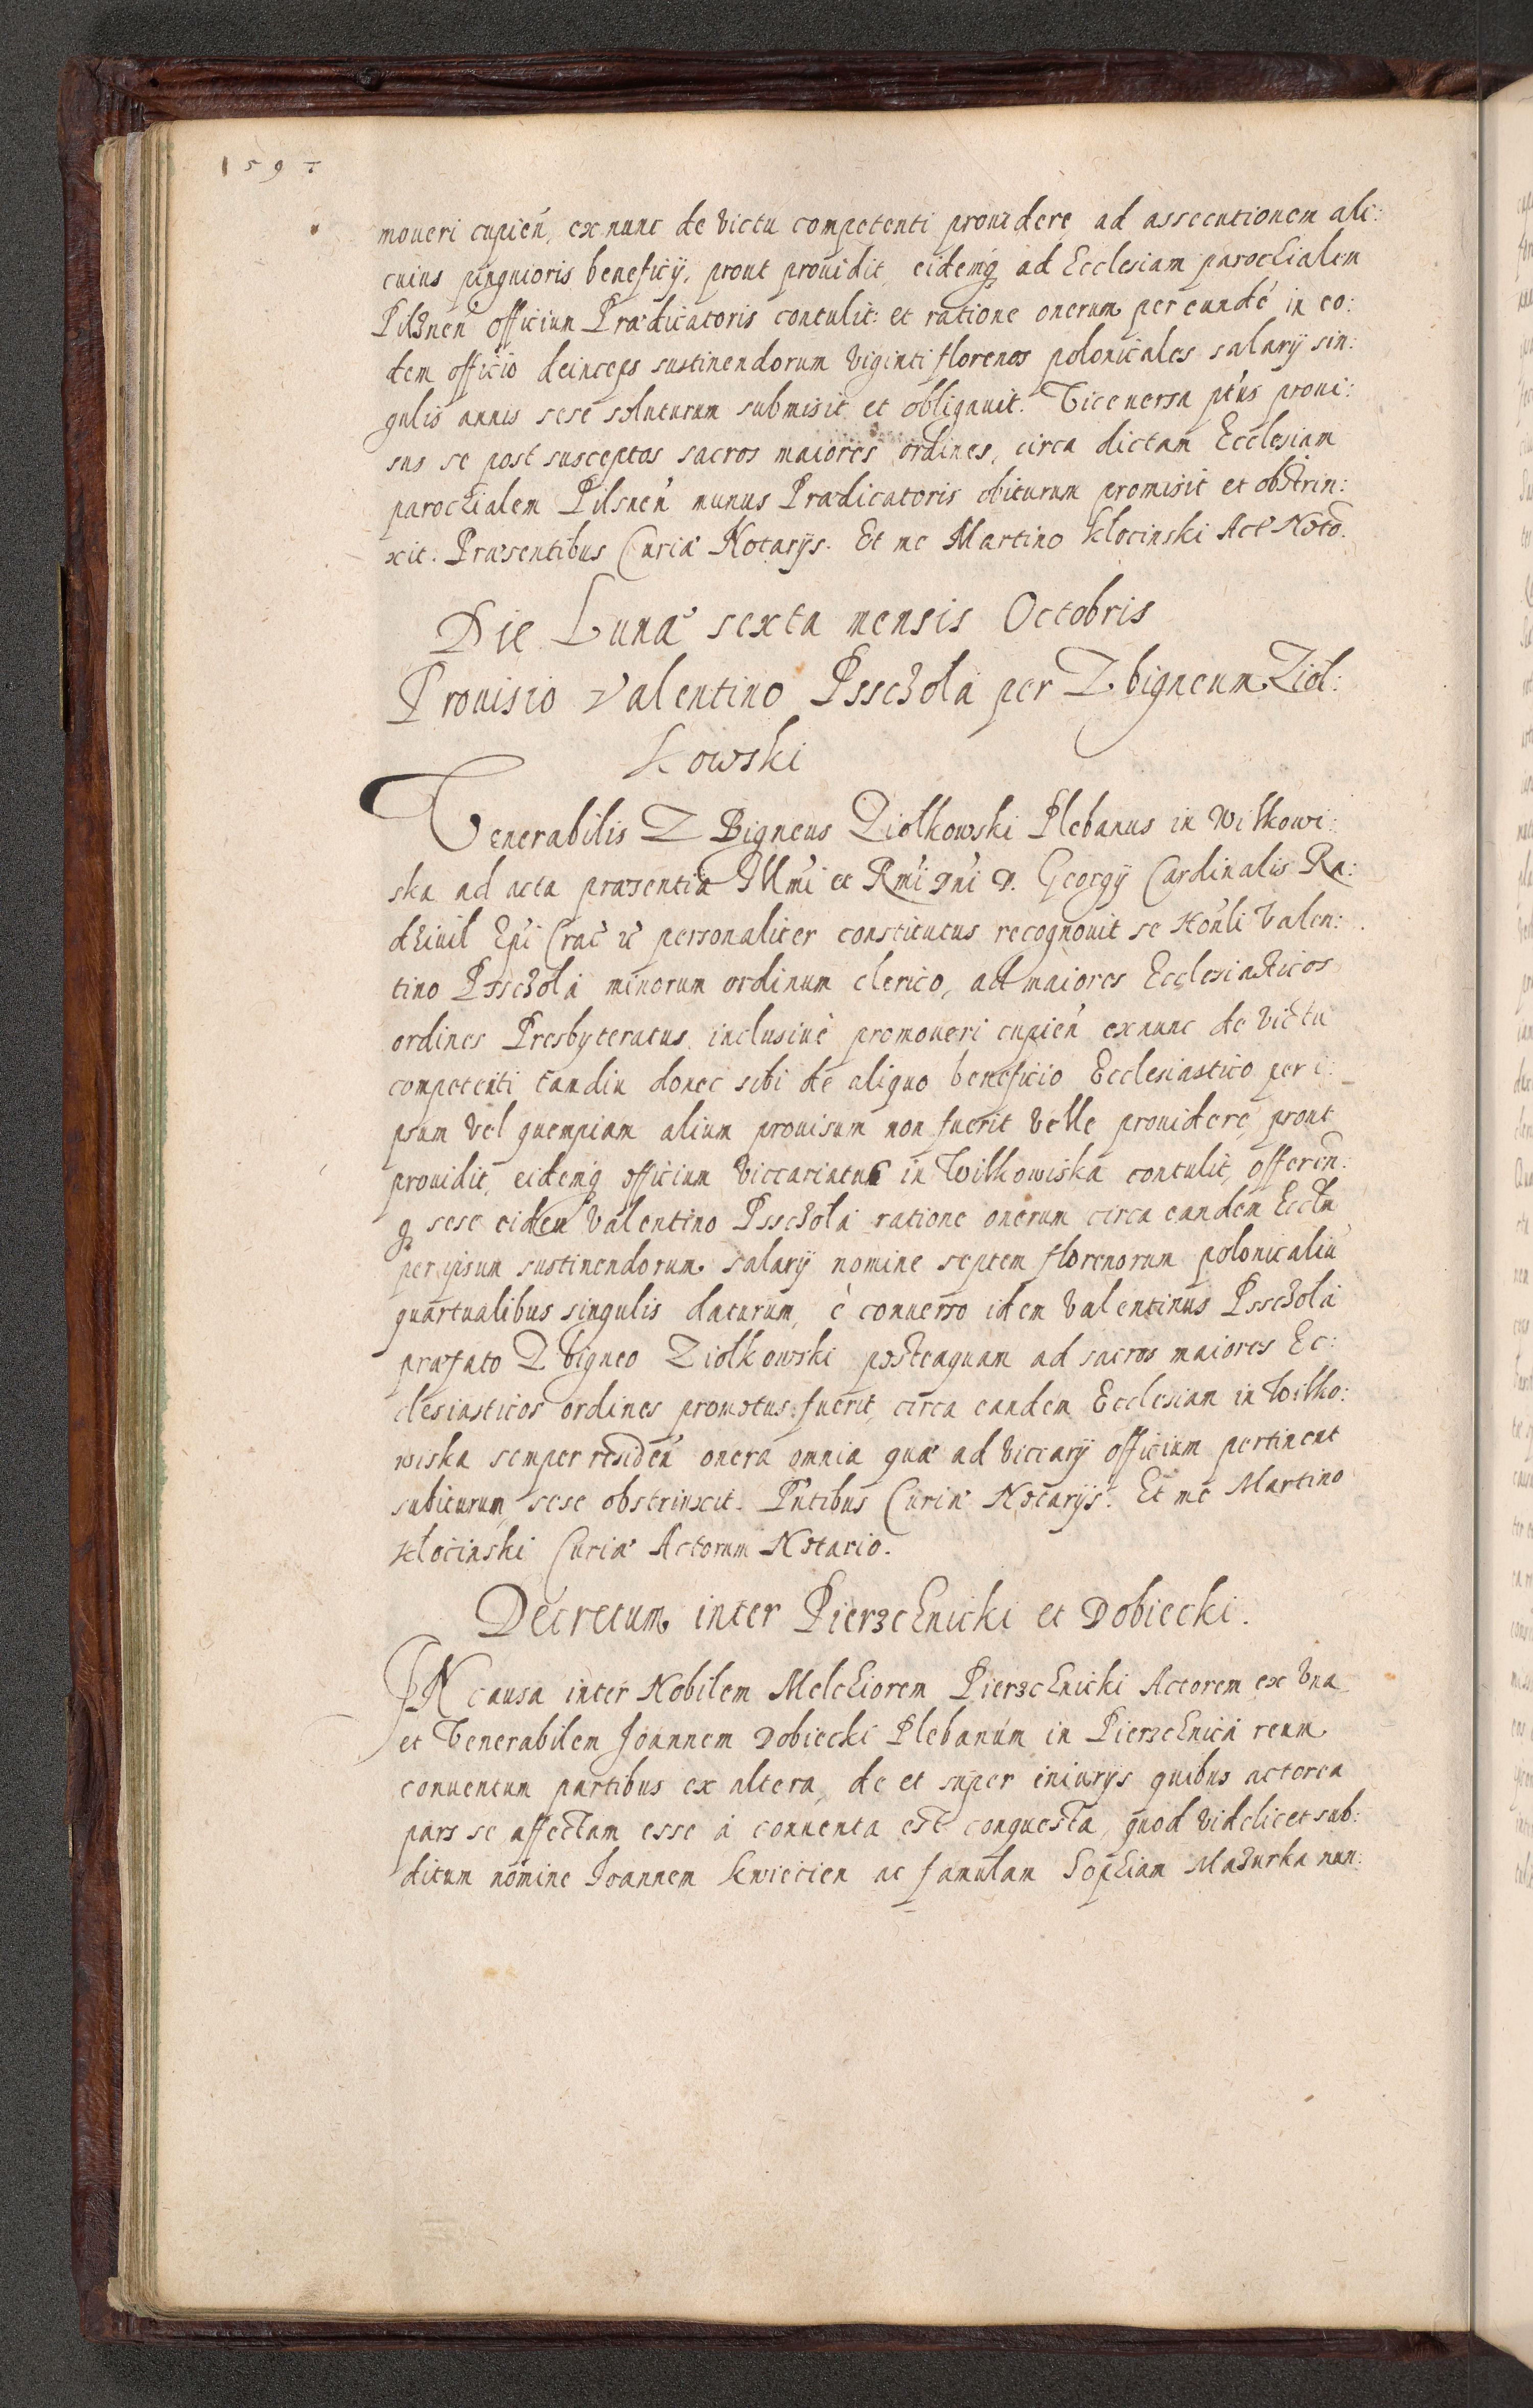 moueri cupien̄, ex nunc de victu competenti prouidere ad assecutionem ali:
cuius pinguioris beneficÿ, prout prouidit, eidemq́ ad Ecclesiam parochialem
Pilznen̄ officium Prædicatoris contulit: et ratione onerum per eundē in eo:
dem officio deinceps sustinendorum viginti florenos polonicales salarÿ sin:
gulis annis sese soluturum submisit et obligauit. Viceuersa pt́us proui:
sus se post susceptos sacros maiores ordines, circa dictam Ecclesiam
parochialem Pilsnen̄ munus Prædicatoris obiturum promisit et obstrin:
xit. Præsentibus Curiæ Notarÿs. Et me Martino Klocinski Act Noto.
Die Lunæ sexta mensis Octobris
Prouisio Valentino Psschola per Zbigneum Ziol:
kowski
Venerabilis Z Bigneus Ziolkowski Plebanus in Wilkowi:
ska ad acta præsentia Illm̄i et Rm̄i Dn̄i D. Georgÿ Cardinalis Ra:
dziuil Ep̄i Crac̄ &c personaliter constitutus recognouit se Hon̄li Valen:
tino Psschola minorum ordinum clerico, ad maiores Ecclesiasticos
ordines Presbyteratus inclusiuè promoueri cupien̄ ex nunc de victu
competenti tandiu donec sibi de aliquo beneficio Ecclesiastico per i:
psum vel quempiam alium prouisum non fuerit velle prouidere, prout
prouidit, eidemq́ officium viccariatus in Wilkowiska contulit, offeren̄:
q́ sese eidem Valentino Psschola ratione onerum circa eandem Eccl̄m
per ipsum sustinendorum salarÿ nomine septem florenorum polonicaliū
quartualibus singulis daturum, è conuerso idem Valentinus Psschola
præfato Zbigneo Ziolkowski posteaquam ad sacros maiores Ec:
clesiasticos ordines promotus fuerit, circa eandem Ecclesiam in Wilko:
wiska semper residen̄ onera omnia quæ ad viccarÿ officium pertinent
subiturum sese obstrinxit. Pn̄tibus Curiæ Notarÿs. Et me Martino
Klocinski Curiæ Actorum Notario.
Decretum inter Pierzchnicki et Dobiecki.
IN causa inter Nobilem Melchiorem Pierzchnicki Actorem ex vna
et Venerabilem Joannem Dobiecki Plebanum in Pierzchnica reum
conuentum partibus ex altera, de et super iniurÿs quibus actorea
pars se affectam esse à conuenta est conquesta, quod videlicet sub:
ditum nomine Joannem Kwiecien ac famulam Sophiam Mazurka nun: